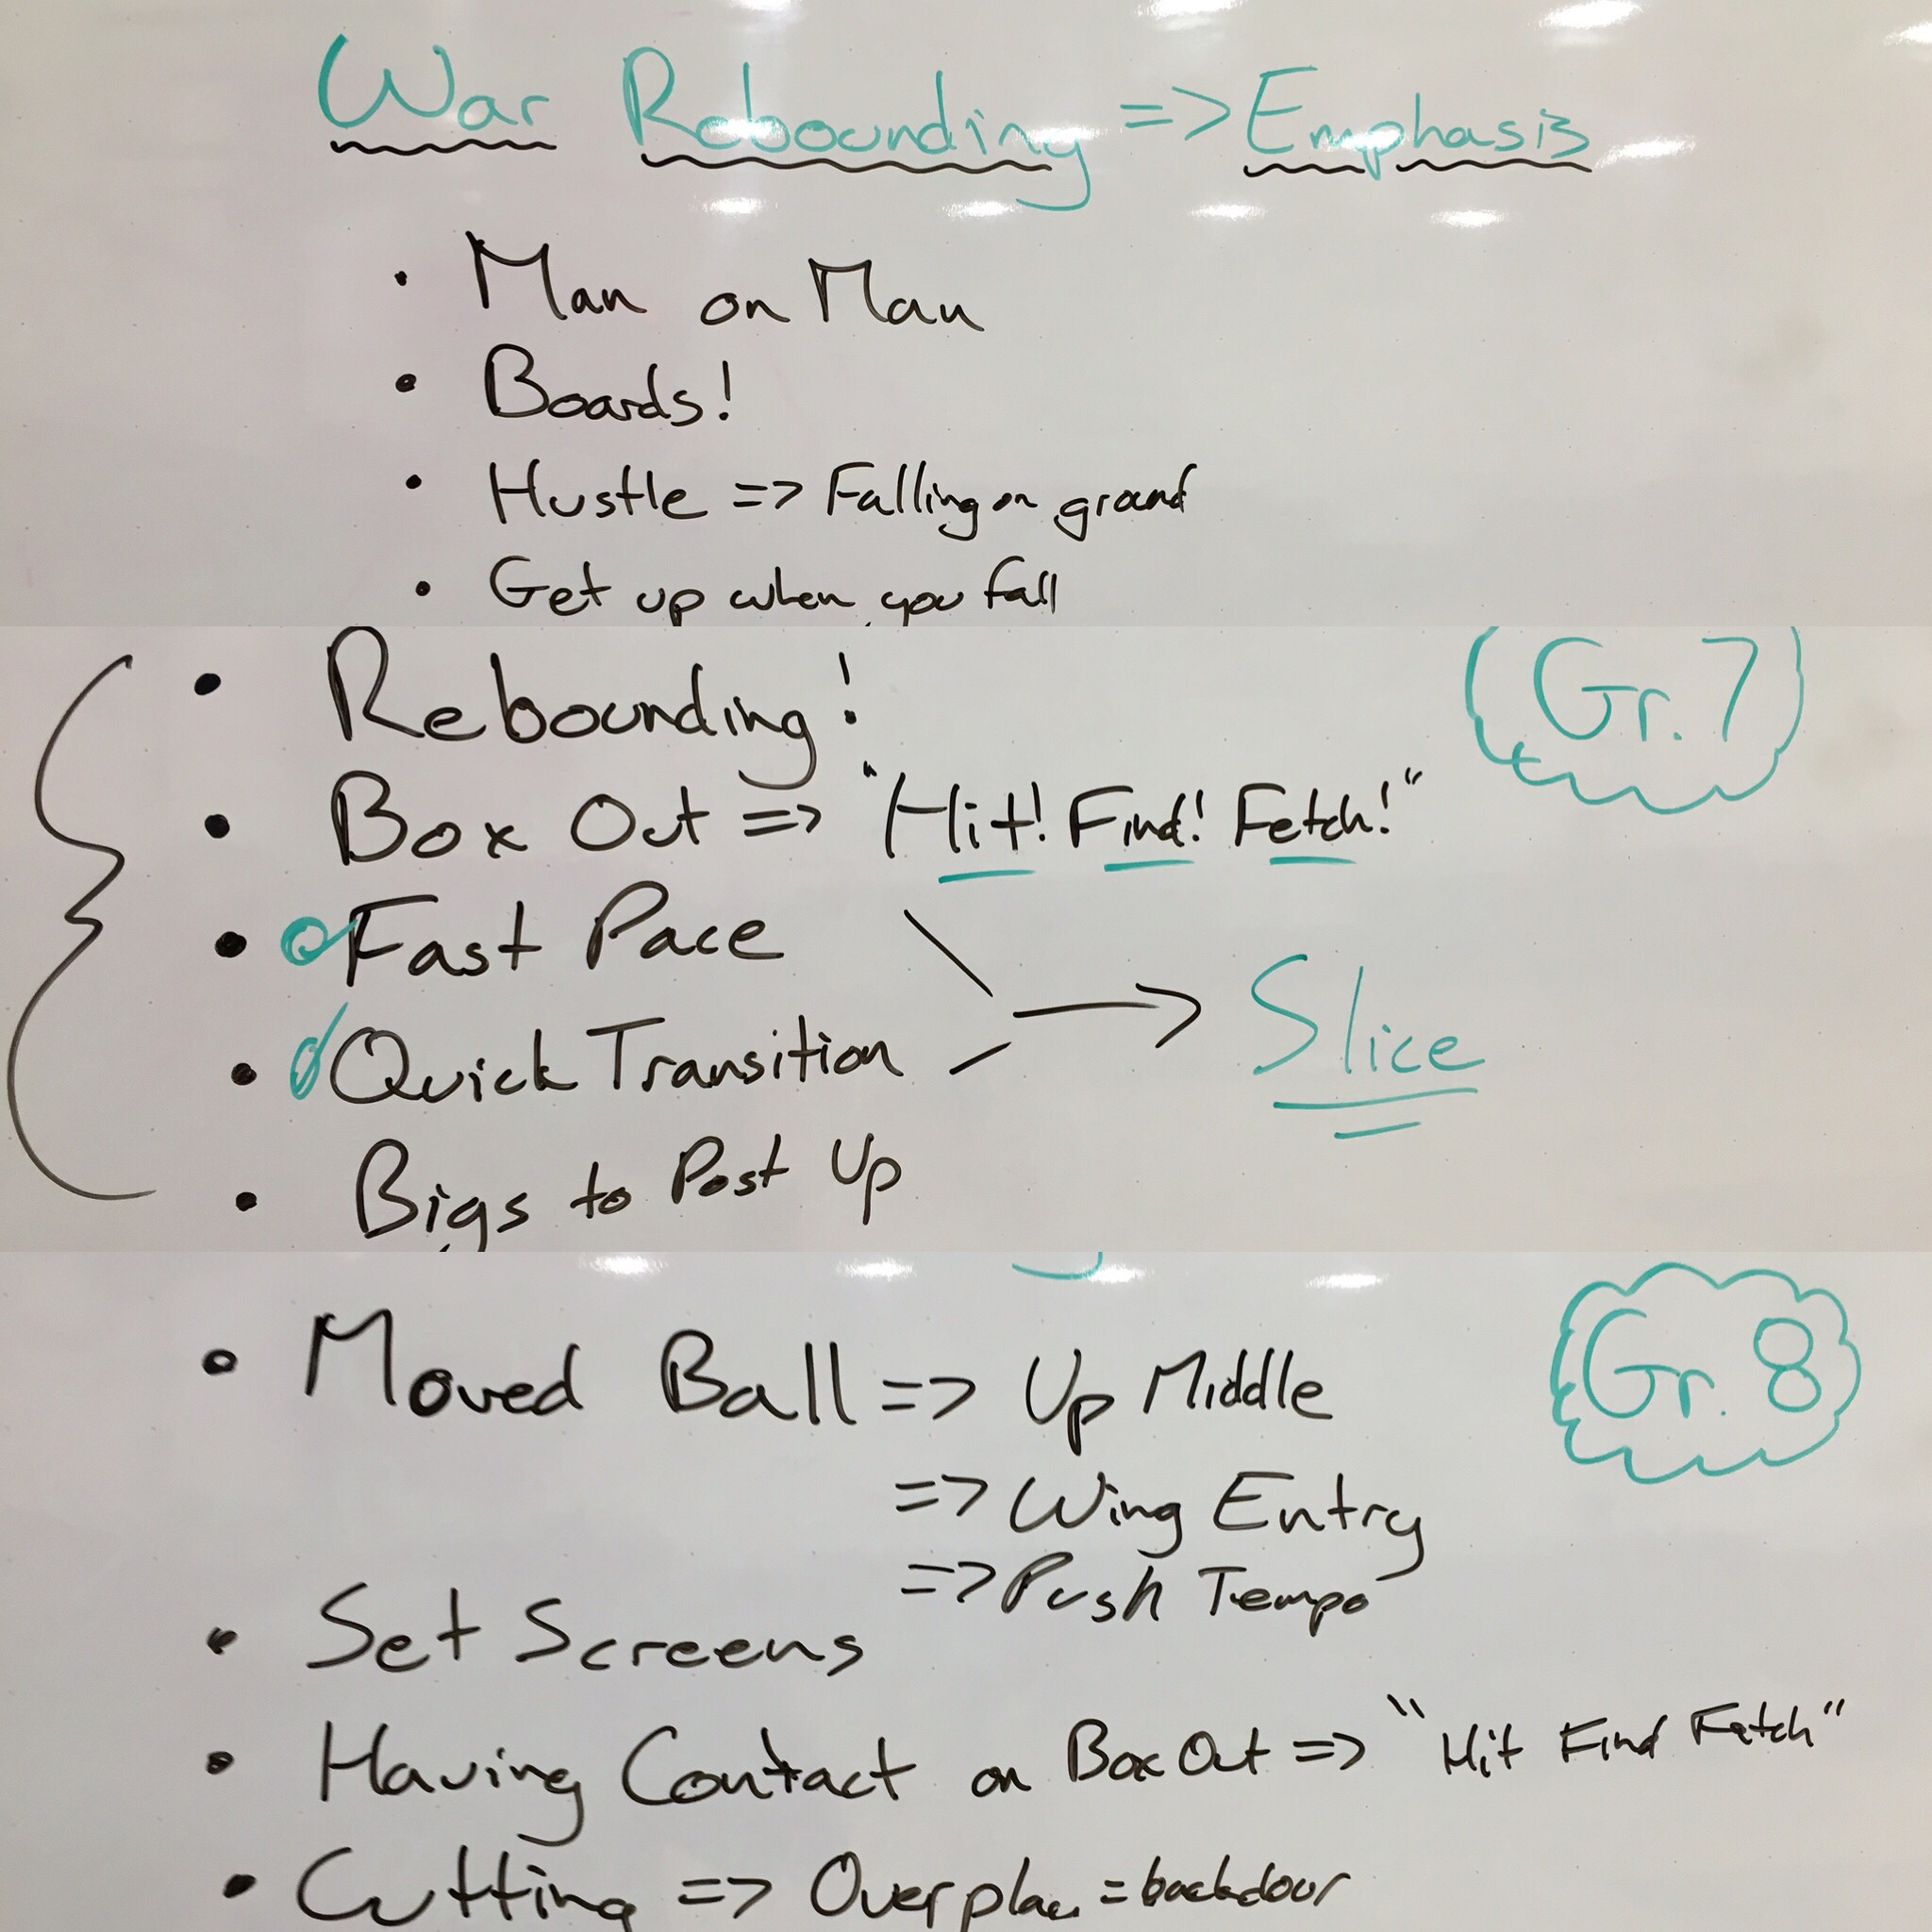 War Rebounding => Emphasis
• Man on Man
• Boards!
• Hustle => Falling on ground
• Get up when you fall
• Rebounding!
Gr. 7
• Box Out => "Hit! Find! Fetch!"
• Fast Pace
• Quick Transition
Slice
• Bigs to Post Up
• Moved Ball => Up Middle
Gr. 8
=> Wing Entry
=> Push Tempo
• Set Screens
• Having Contact on Box Out => "Hit Find Fetch"
• Cutting => Overplay = backdoor